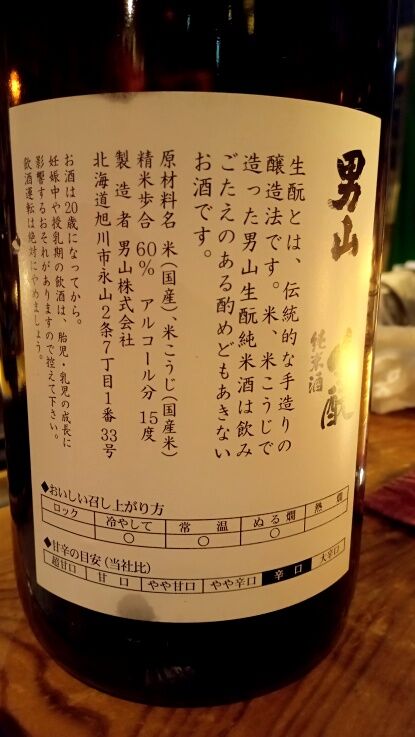 男山
酛
純米酒
生酛とは、伝統的な手造りの
醸造法です。米、米こうじで
造った男山生酛純米酒は飲み
ごたえのある酌めどもあきない
お酒です。
原材料名 米(国産)、米こうじ(国産米)
精米歩合 60% アルコール分 15度
製造者 男山株式会社
北海道旭川市永山2条7丁目1番33号
お酒は20歳になってから。
妊娠中や授乳期の飲酒は、胎児・乳児の成長に
影響するおそれがありますので控えて下さい。
飲酒運転は絶対にやめましょう。
◆おいしい召し上がり方
ロック 冷やして 常温 ぬる燗 熱燗
○ ○ ○
◆甘辛の目安(当社比)
超甘口 甘口 やや甘口 やや辛口 辛口 大辛口